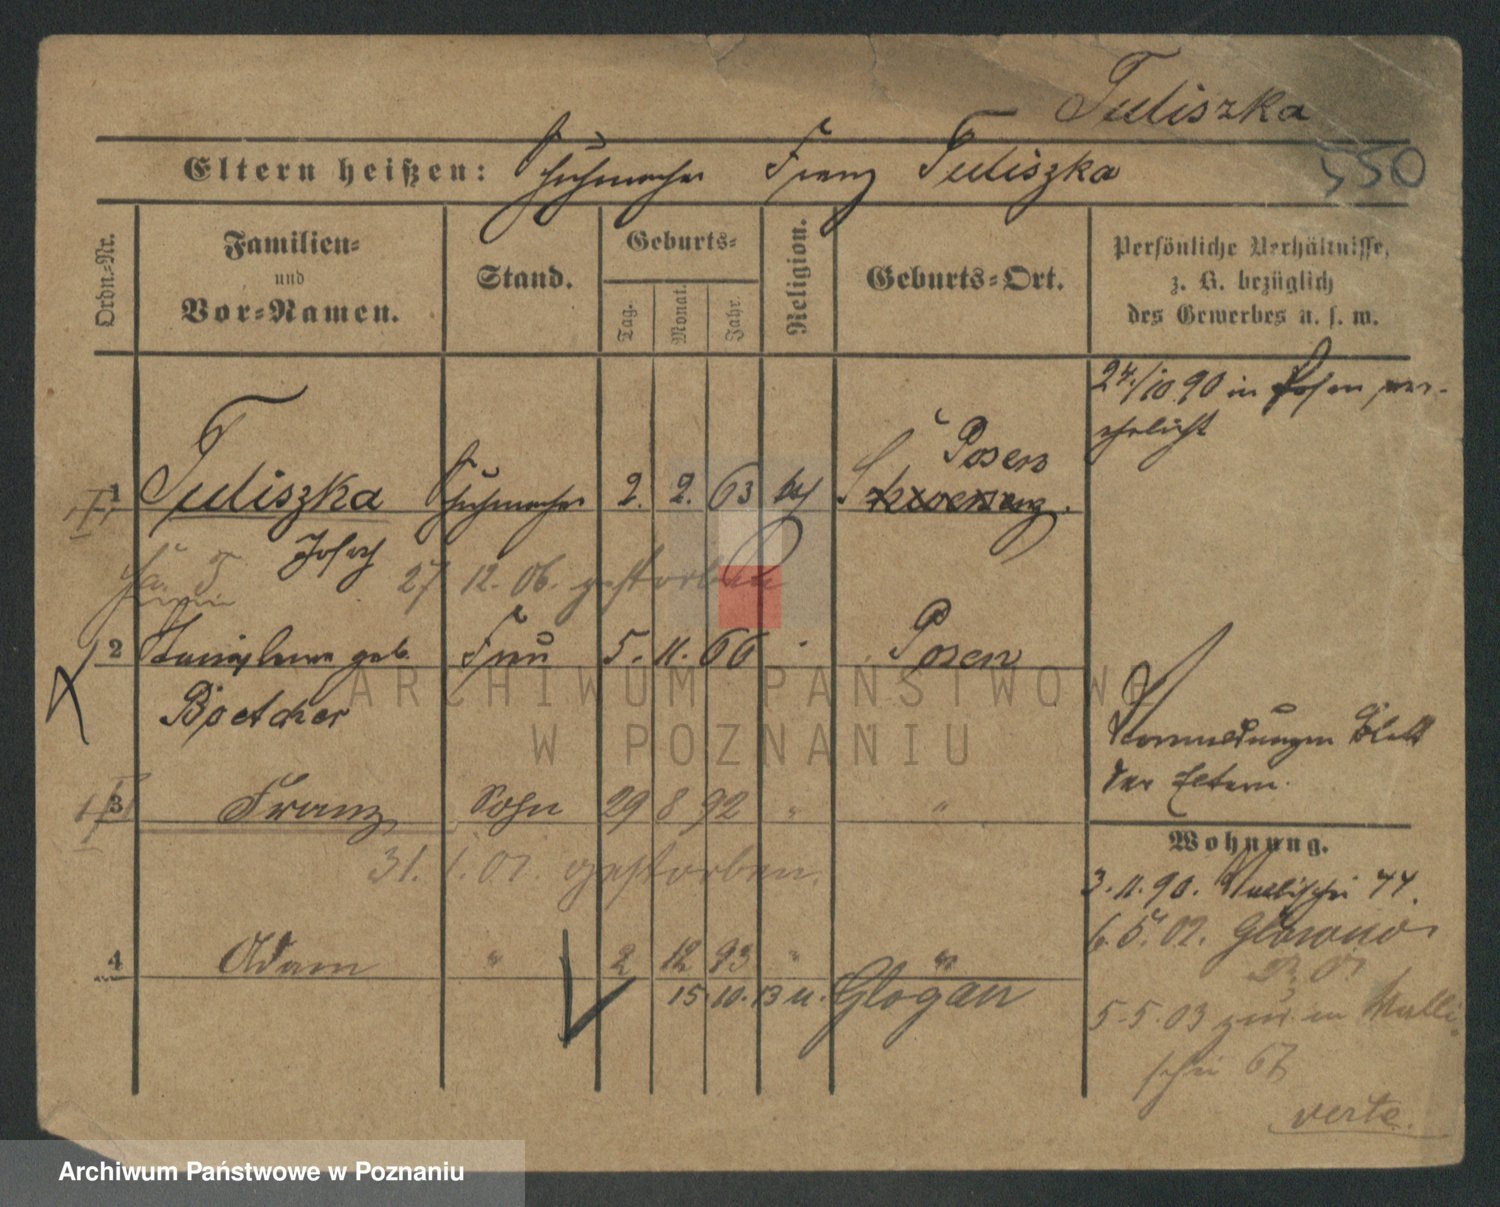 Tuliszka
550
Eltern heißen: Schuhmacher Franz Tuliszka
Ordn.-Nr.
Familien-
und
Vor-Namen.
Stand.
Geburts-
Tag.
Monat.
Jahr.
Religion.
Geburts-Ort.
Persönliche Verhältnisse,
z. B. bezüglich
des Gewerbes u. s. w.
24./10 90 in Posen ver-
ehelicht
Posen
1 Tuliszka Schuhmacher 2. 2. 63 kth Schwersenz.
Josef
27 12. 06. gestorben
2 geb. Frau 5. 11. 66 " Posen
Boetcher
Anmeldungen Blatt
der Eltern.
3 Franz Sohn 29 8 92 " "
31. 1. 07. gestorben.
Wohnung.
3. 11. 90. Wallischei 44.
6. 5. 02. Glowno
4 Adam " 2 12 93 " "
15. 10. 13 n. Glogau
5-5. 03 zur. in Walli-
schei 67
verte.
ARCHIWUM PAŃSTWOWE
W POZNANIU
Archiwum Państwowe w Poznaniu